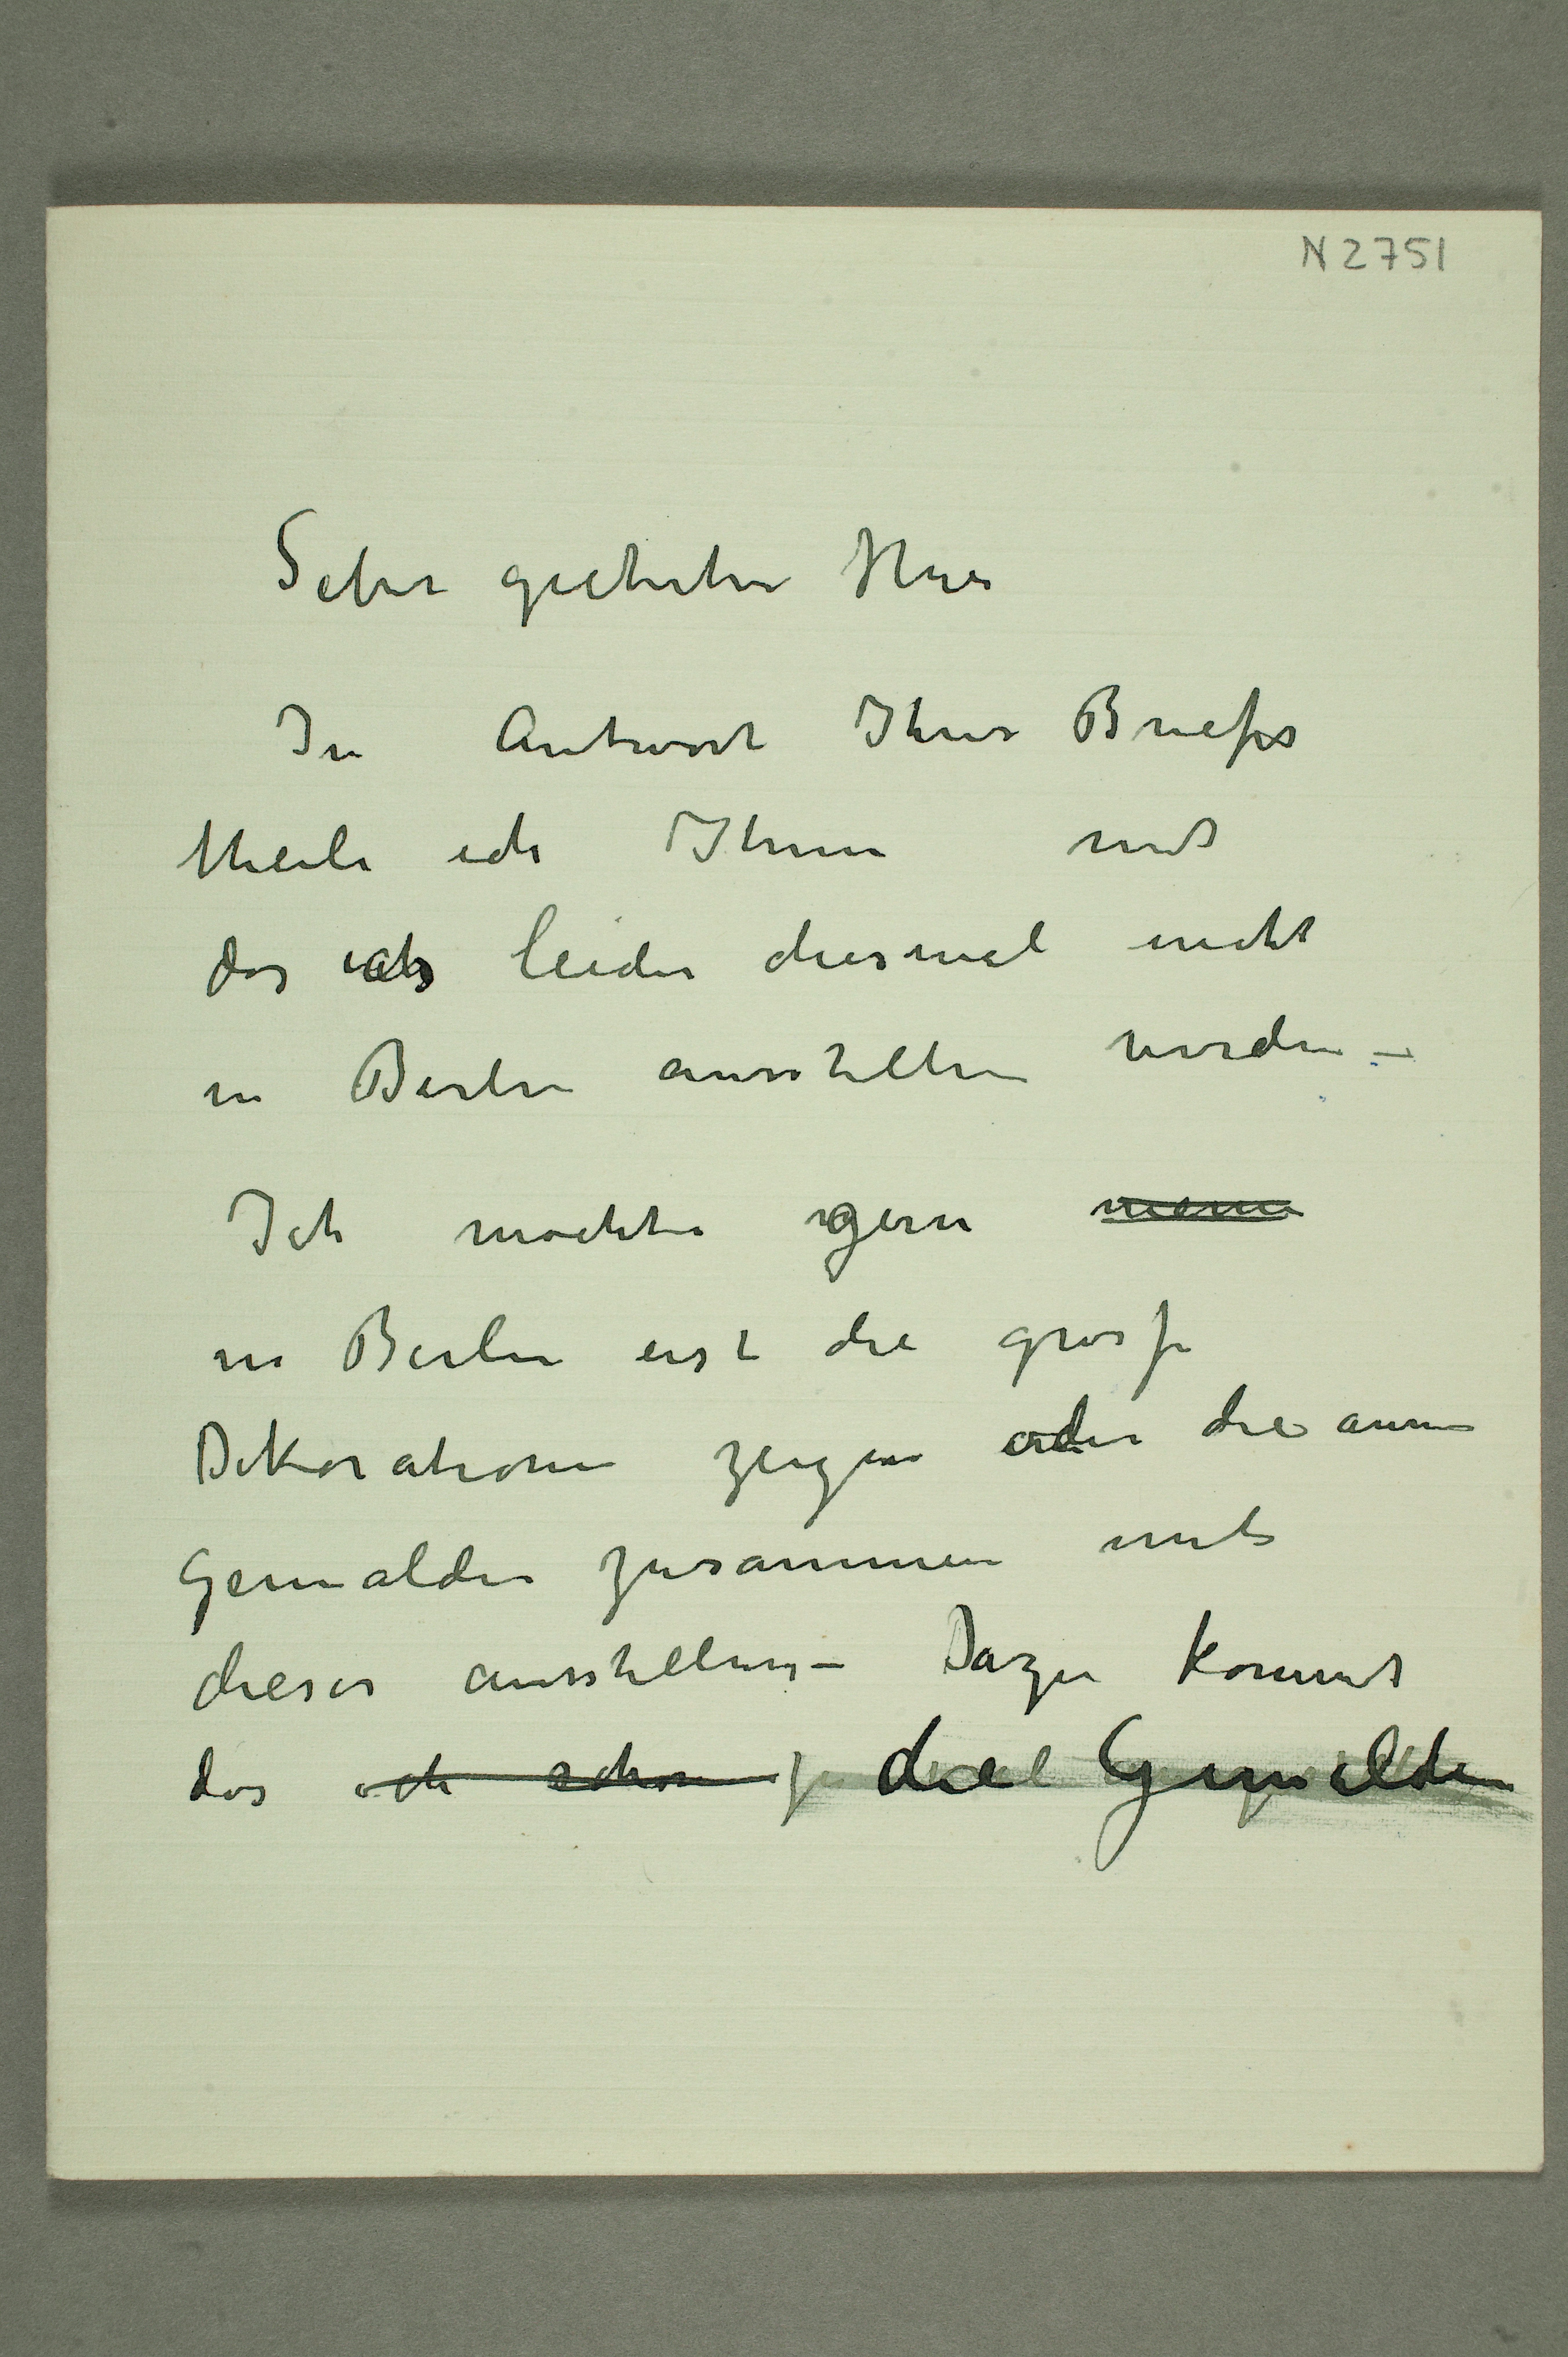 N 2751
Sehr geehrter Herr
In Antwort Ihres Briefes
theile ich Ihnen mit
das ich leider diesmal nicht
in Berlin ausstellen werde –
Ich möchte gern meine
in Berlin erst die grosse
Dekorationen zeigen oder die
Gemälden zusammen mit
dieser ausstellung – Dazu kommt
das ich schon die Gemälden